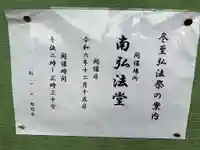 冬至弘法祭の案内
開催場所
南弘法堂
開催日
令和六年十二月十五日
開催時間
午後二時～三時三十分